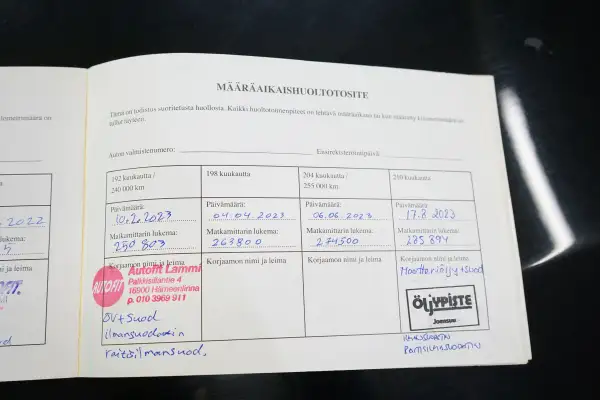 MÄÄRÄAIKAISHUOLTOTOSITE
Tämä on todistus suoritetusta huollosta. Kaikki huoltotoimenpiteet on tehtävä määräaikana tai kun
tullut täyteen.
Auton valmistenumero:
Ensirekisteröintipäivä
192 kuukautta /
240 000 km
198 kuukautta
204 kuukautta /
255 000 km
210 kuukautta
Päivämäärä:
10.2.2023
Päivämäärä:
04.04.2023
Päivämäärä:
06.06.2023
Päivämäärä:
17.8 2023
Matkamittarin lukema:
250 803
Matkamittarin lukema:
263800
Matkamittarin lukema:
274500
Matkamittarin lukema:
285 894
Korjaamon nimi ja leima
Korjaamon nimi ja leima
Korjaamon nimi ja leima
Korjaamon nimi ja leima
AUTOFIT
Autofit Lammi
Palkkisillantie 4
16900 Hämeenlinna
p. 010 3969 911
ÖV+Suod
ilmansuodatin
raitisilmansuod.
Moottoriöljy+suod
ÖLJYPISTE
Joensuu
2022
lukema:
ni ja leima